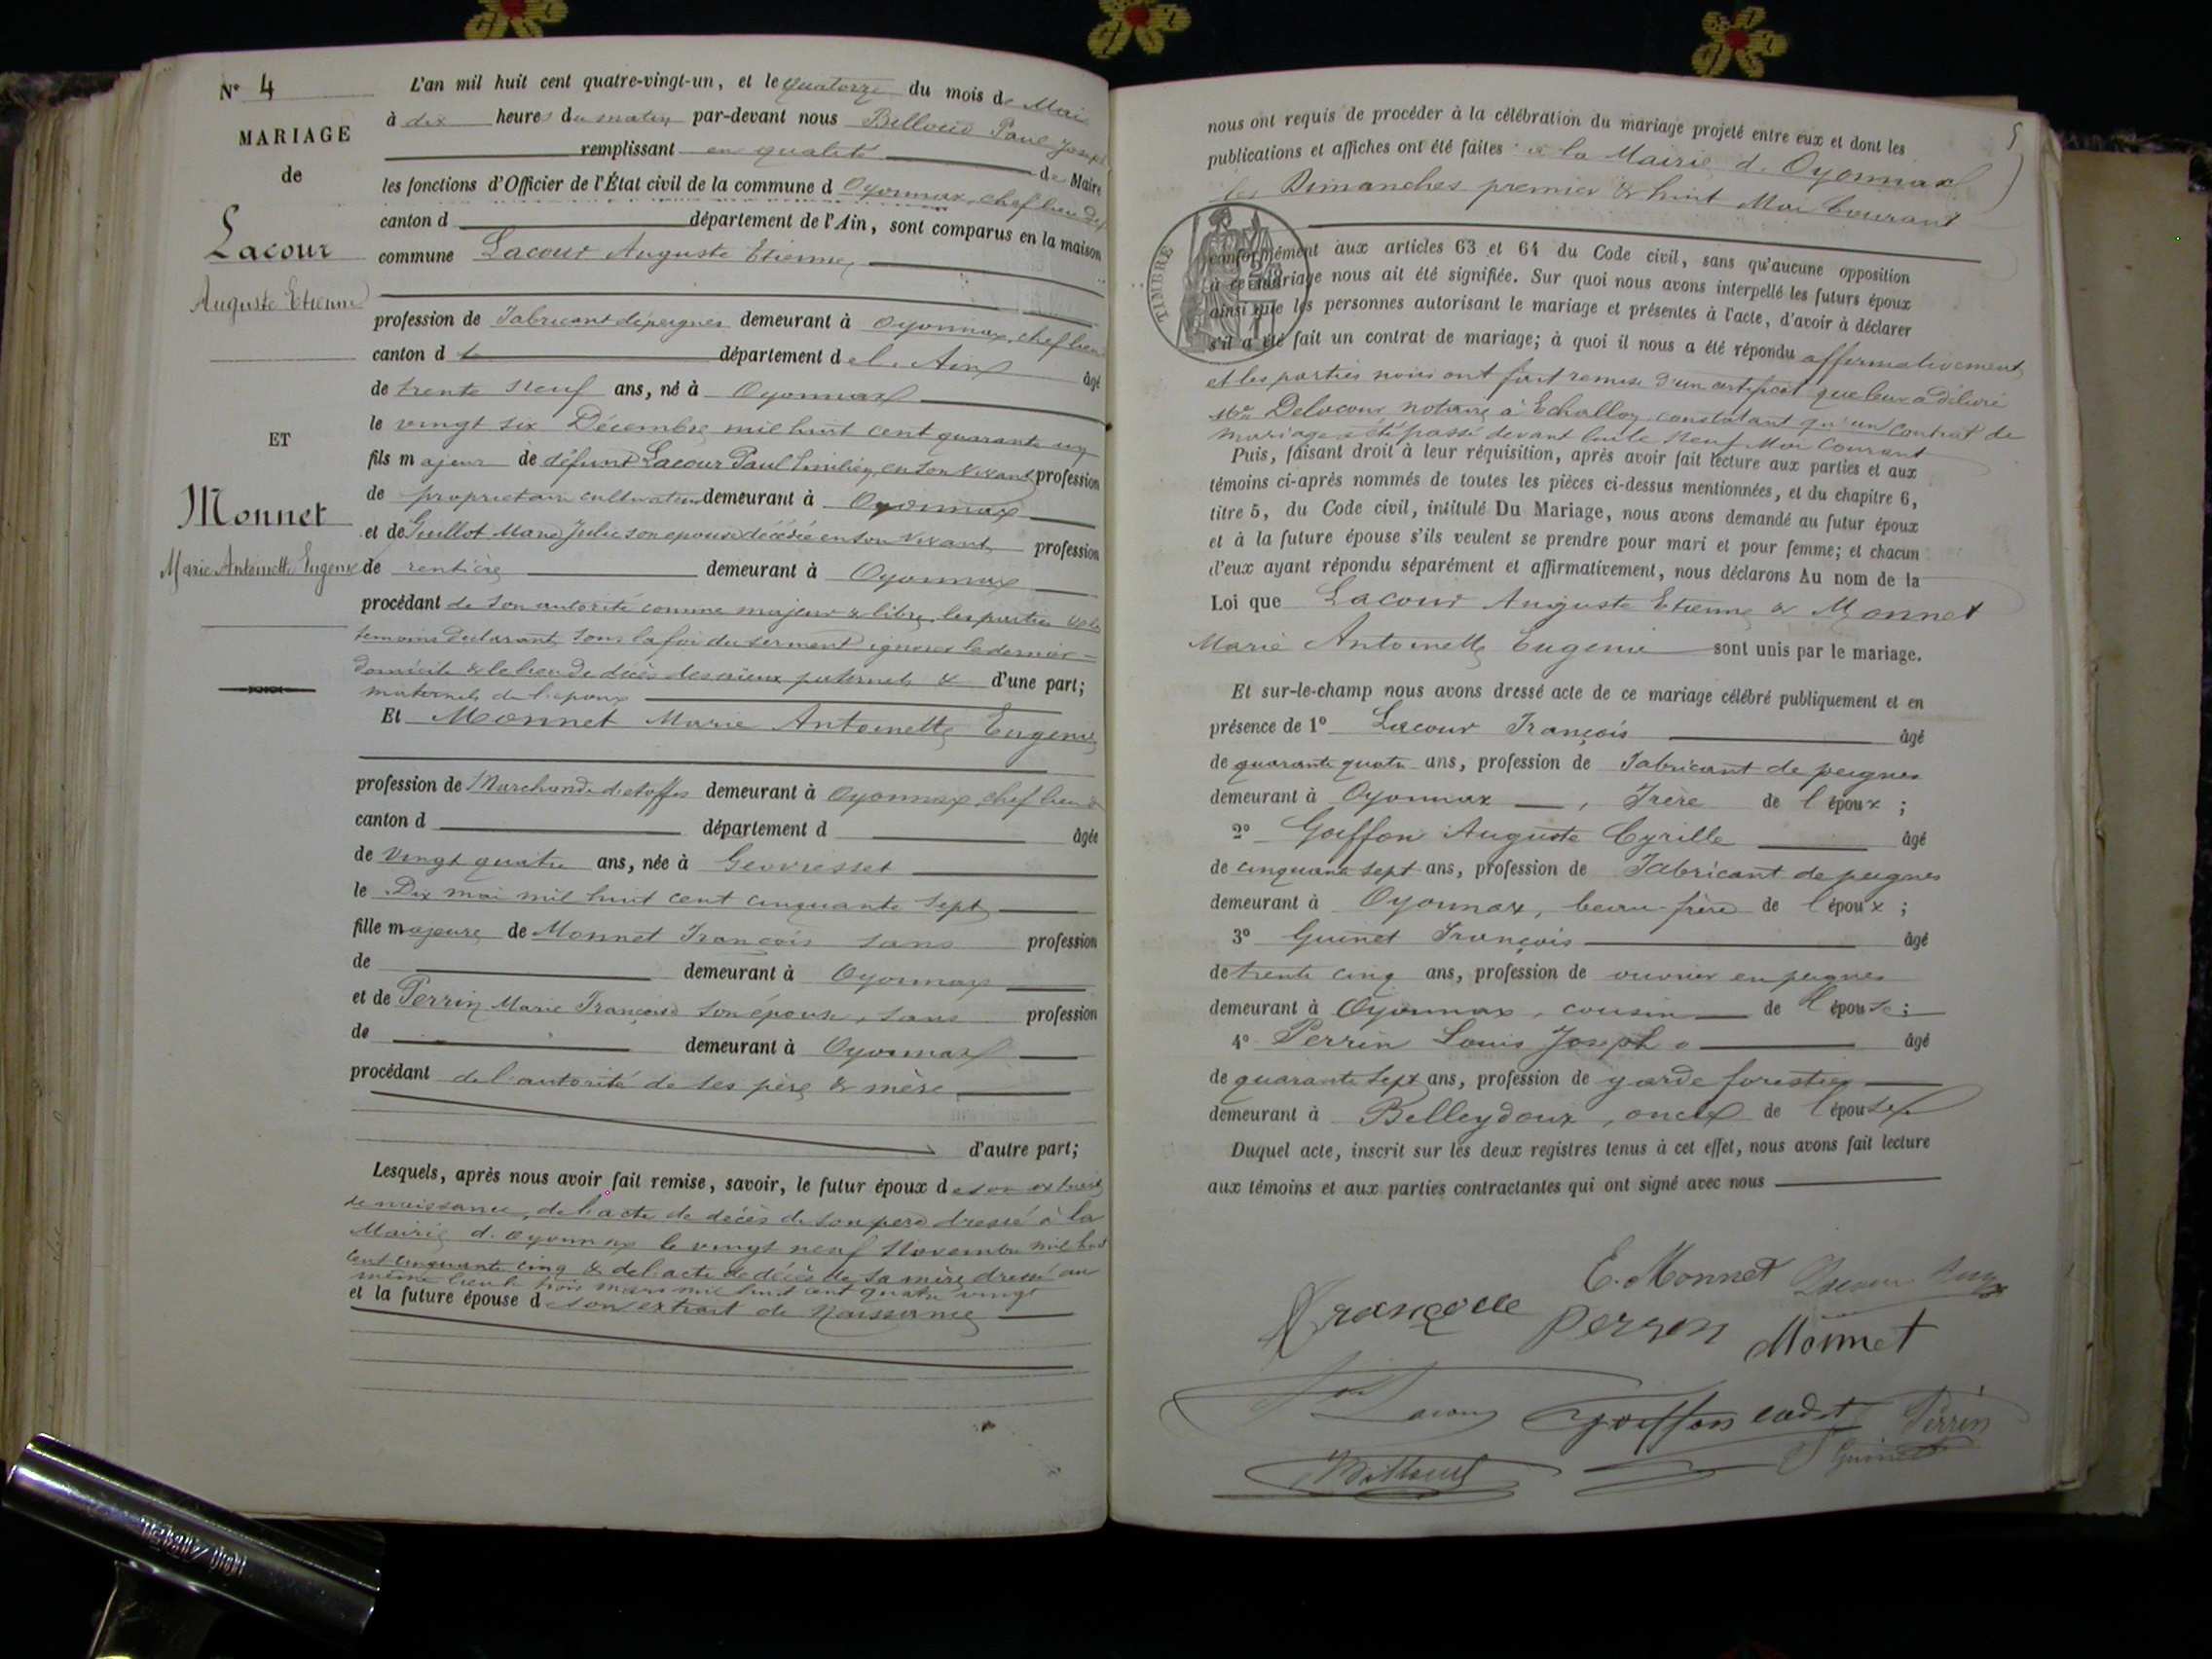 N° 4
MARIAGE
de
Lacour
Auguste Etienne
ET
Monnet
Marie Antoinette Eugenie
L'an mil huit cent quatre-vingt-un, et le quatorze du mois de Mai
à dix heures du matin par-devant nous Belloud Paul Joseph
remplissant en qualité de Maire
les fonctions d'Officier de l'État civil de la commune d Oyonnax, chef lieu de
canton d département de l'Ain, sont comparus en la maison
commune Lacour Auguste Etienne
profession de Fabricant de peignes demeurant à Oyonnax, chef lieu
canton d département de l'Ain âgé
de trente neuf ans, né à Oyonnax
le vingt six Décembre mil huit cent quarante un
fils majeur de défunt Lacour Paul Emilien, en son vivant profession
de proprietaire cultivateur demeurant à Oyonnax
et de Guillot Marie Julie son epouse décédée en son vivant profession
de rentière demeurant à Oyonnax
procédant de son autorité comme majeur & libre, les parties & les
temoins declarant sous la foi du serment ignorer le dernier
domicile & le lieu de décès des aïeux paternels & d'une part;
maternels de l'epoux
Et Monnet Marie Antoinette Eugenie
profession de Marchande d'etoffes demeurant à Oyonnax, chef lieu de
canton d département d âgée
de vingt quatre ans, née à Geovresset
le Dix mai mil huit cent cinquante sept
fille majeure de Monnet François sans profession
de demeurant à Oyonnax
et de Perrin Marie Françoise son épouse, sans profession
de demeurant à Oyonnax
procédant de l'autorité de ses père & mère
d'autre part;
Lesquels, après nous avoir fait remise, savoir, le futur époux de son extrait
de naissance, de l'acte de décès de son père dressé à la
Mairie d. Oyonnax le vingt neuf Novembre mil huit
cent cinquante cinq & de l'acte de décès de sa mère dressé au
même lieu le trois mars mil huit cent quatre vingt
et la future épouse de son extrait de Naissance
5
nous ont requis de procéder à la célébration du mariage projeté entre eux et dont les
publications et affiches ont été faites à la Mairie d. Oyonnax
les Dimanches premier & huit Mai Courant
TIMBRE
conformément aux articles 63 et 64 du Code civil, sans qu'aucune opposition
à ce mariage nous ait été signifiée. Sur quoi nous avons interpellé les futurs époux
ainsi que les personnes autorisant le mariage et présentes à l'acte, d'avoir à déclarer
s'il a été fait un contrat de mariage; à quoi il nous a été répondu affirmativement
et les parties nous ont fait remise d'un certificat que leur a délivré
Me Delacour notaire à Echallon, constatant qu'un Contrat de
mariage a été passé devant lui le Neuf Mai Courant
Puis, faisant droit à leur réquisition, après avoir fait lecture aux parties et aux
témoins ci-après nommés de toutes les pièces ci-dessus mentionnées, et du chapitre 6,
titre 5, du Code civil, intitulé Du Mariage, nous avons demandé au futur époux
et à la future épouse s'ils veulent se prendre pour mari et pour femme; et chacun
d'eux ayant répondu séparément et affirmativement, nous déclarons Au nom de la
Loi que Lacour Auguste Etienne & Monnet
Marie Antoinette Eugenie sont unis par le mariage.
Et sur-le-champ nous avons dressé acte de ce mariage célébré publiquement et en
présence de 1° Lacour François âgé
de quarante quatre ans, profession de Fabricant de peignes
demeurant à Oyonnax, Frère de l'époux;
2° Goiffon Auguste Cyrille âgé
de cinquante sept ans, profession de Fabricant de peignes
demeurant à Oyonnax, beau-frère de l'époux;
3° Guinet François âgé
de trente cinq ans, profession de ouvrier en peignes
demeurant à Oyonnax, cousin de l'épouse;
4° Perrin Louis Joseph âgé
de quarante sept ans, profession de garde forestier
demeurant à Belleydoux, oncle de l'épouse
Duquel acte, inscrit sur les deux registres tenus à cet effet, nous avons fait lecture
aux témoins et aux parties contractantes qui ont signé avec nous
E. Monnet Lacour Aug
Françoise perren Monnet
Lacour Goiffon cadet Perrin
Belloud F Guinet